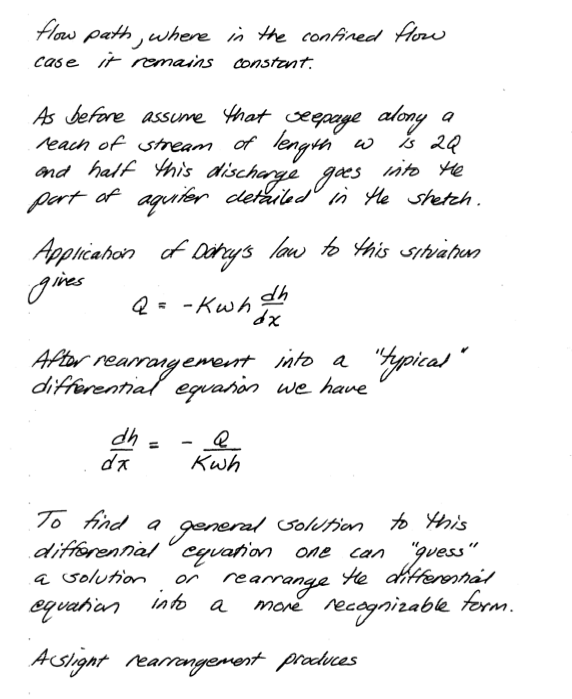 flow path, where in the confined flow
case it remains constant.
As before assume that seepage along a
reach of stream of length w is 2Q
and half this discharge goes into the
part of aquifer detailed in the sketch.
Application of Darcy's law to this situation
gives
Q = -Kwh dh/dx
After rearrangement into a "typical"
differential equation we have
dh/dx = - Q/Kwh
To find a general solution to this
differential equation one can "guess"
a solution or rearrange the differential
equation into a more recognizable form.
A slight rearrangement produces